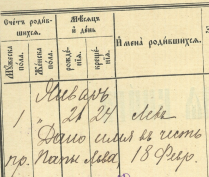 Счетъ родив-
шихся.
Мѣсяцъ
и день
Имена родившихся.
Мужеска
пола.
Женска
пола.
рожде-
нія.
креще-
нія.
Январь
1 " 21 24 Левъ
Дано имя въ честь
пр. Папы Льва 18 Февр.